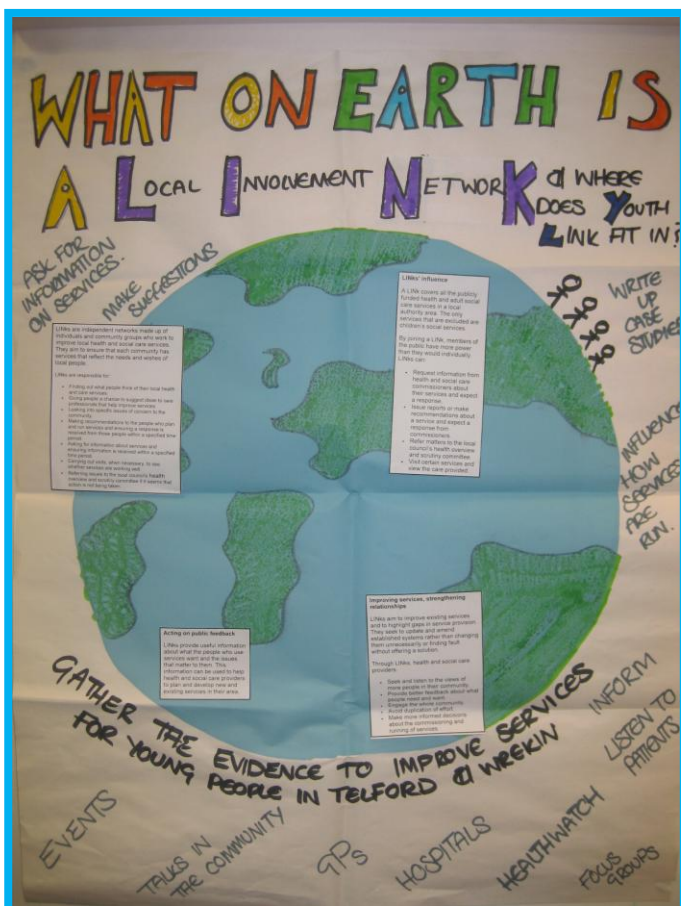 WHAT ON EARTH IS
A LOCAL INVOLVEMENT NETWORK & WHERE
DOES YOUTH
LINK FIT IN?
ASK FOR
INFORMATION
ON SERVICES.
MAKE
SUGGESTIONS
WRITE
UP
CASE
STUDIES
INFLUENCE
HOW
SERVICES
ARE
RUN.
LINks are independent networks made up of
individuals and community groups who work to
improve local health and social care services.
They aim to ensure that each community has
services that reflect the needs and wishes of
local people.
LINks are responsible for:
• Finding out what people think of their local health
and care services
• Giving people a chance to suggest ideas to care
professionals that help improve services
• Looking into specific issues of concern to the
community
• Making recommendations to the people who plan
and run services and ensuring a response is
received from those people within a specified time
period
• Asking for information about services and
ensuring information is received within a specified
time period
• Carrying out visits, when necessary, to see
whether services are working well
• Referring issues to the local council's health
overview and scrutiny committee if it seems that
action is not being taken
LINks' influence
A LINk covers all the publicly
funded health and adult social
care services in a local
authority area. The only
services that are excluded are
children's social services.
By joining a LINk, members of
the public have more power
than they would individually.
LINks can:
• Request information from
health and social care
commissioners about
their services and expect
a response.
• Issue reports or make
recommendations to
service and expect a
response from
commissioners.
• Refer matters to the local
council's health overview
and scrutiny committee
• Visit certain services and
view the care provided
Acting on public feedback
LINks provide useful information
about what the people who use
services want and the issues
that matter to them. This
information can be used to help
health and social care providers
to plan and develop new and
existing services in their area.
Improving services, strengthening
relationships
LINks aim to improve existing services
and to highlight gaps in service provision.
They seek to update and amend
established systems rather than changing
them unnecessarily or finding fault
without offering a solution.
Through LINks, health and social care
providers:
• Seek and listen to the views of
more people in their community
• Provide better feedback about what
people need and want
• Engage the whole community
• Avoid duplication of effort
• Make more informed decisions
about the commissioning and
running of services
GATHER THE EVIDENCE TO IMPROVE SERVICES
FOR YOUNG PEOPLE IN TELFORD & WREKIN
INFORM
LISTEN TO
PATIENTS
EVENTS
TALKS IN
THE COMMUNITY
GPs
HOSPITALS
HEALTHWATCH
FOCUS
GROUPS